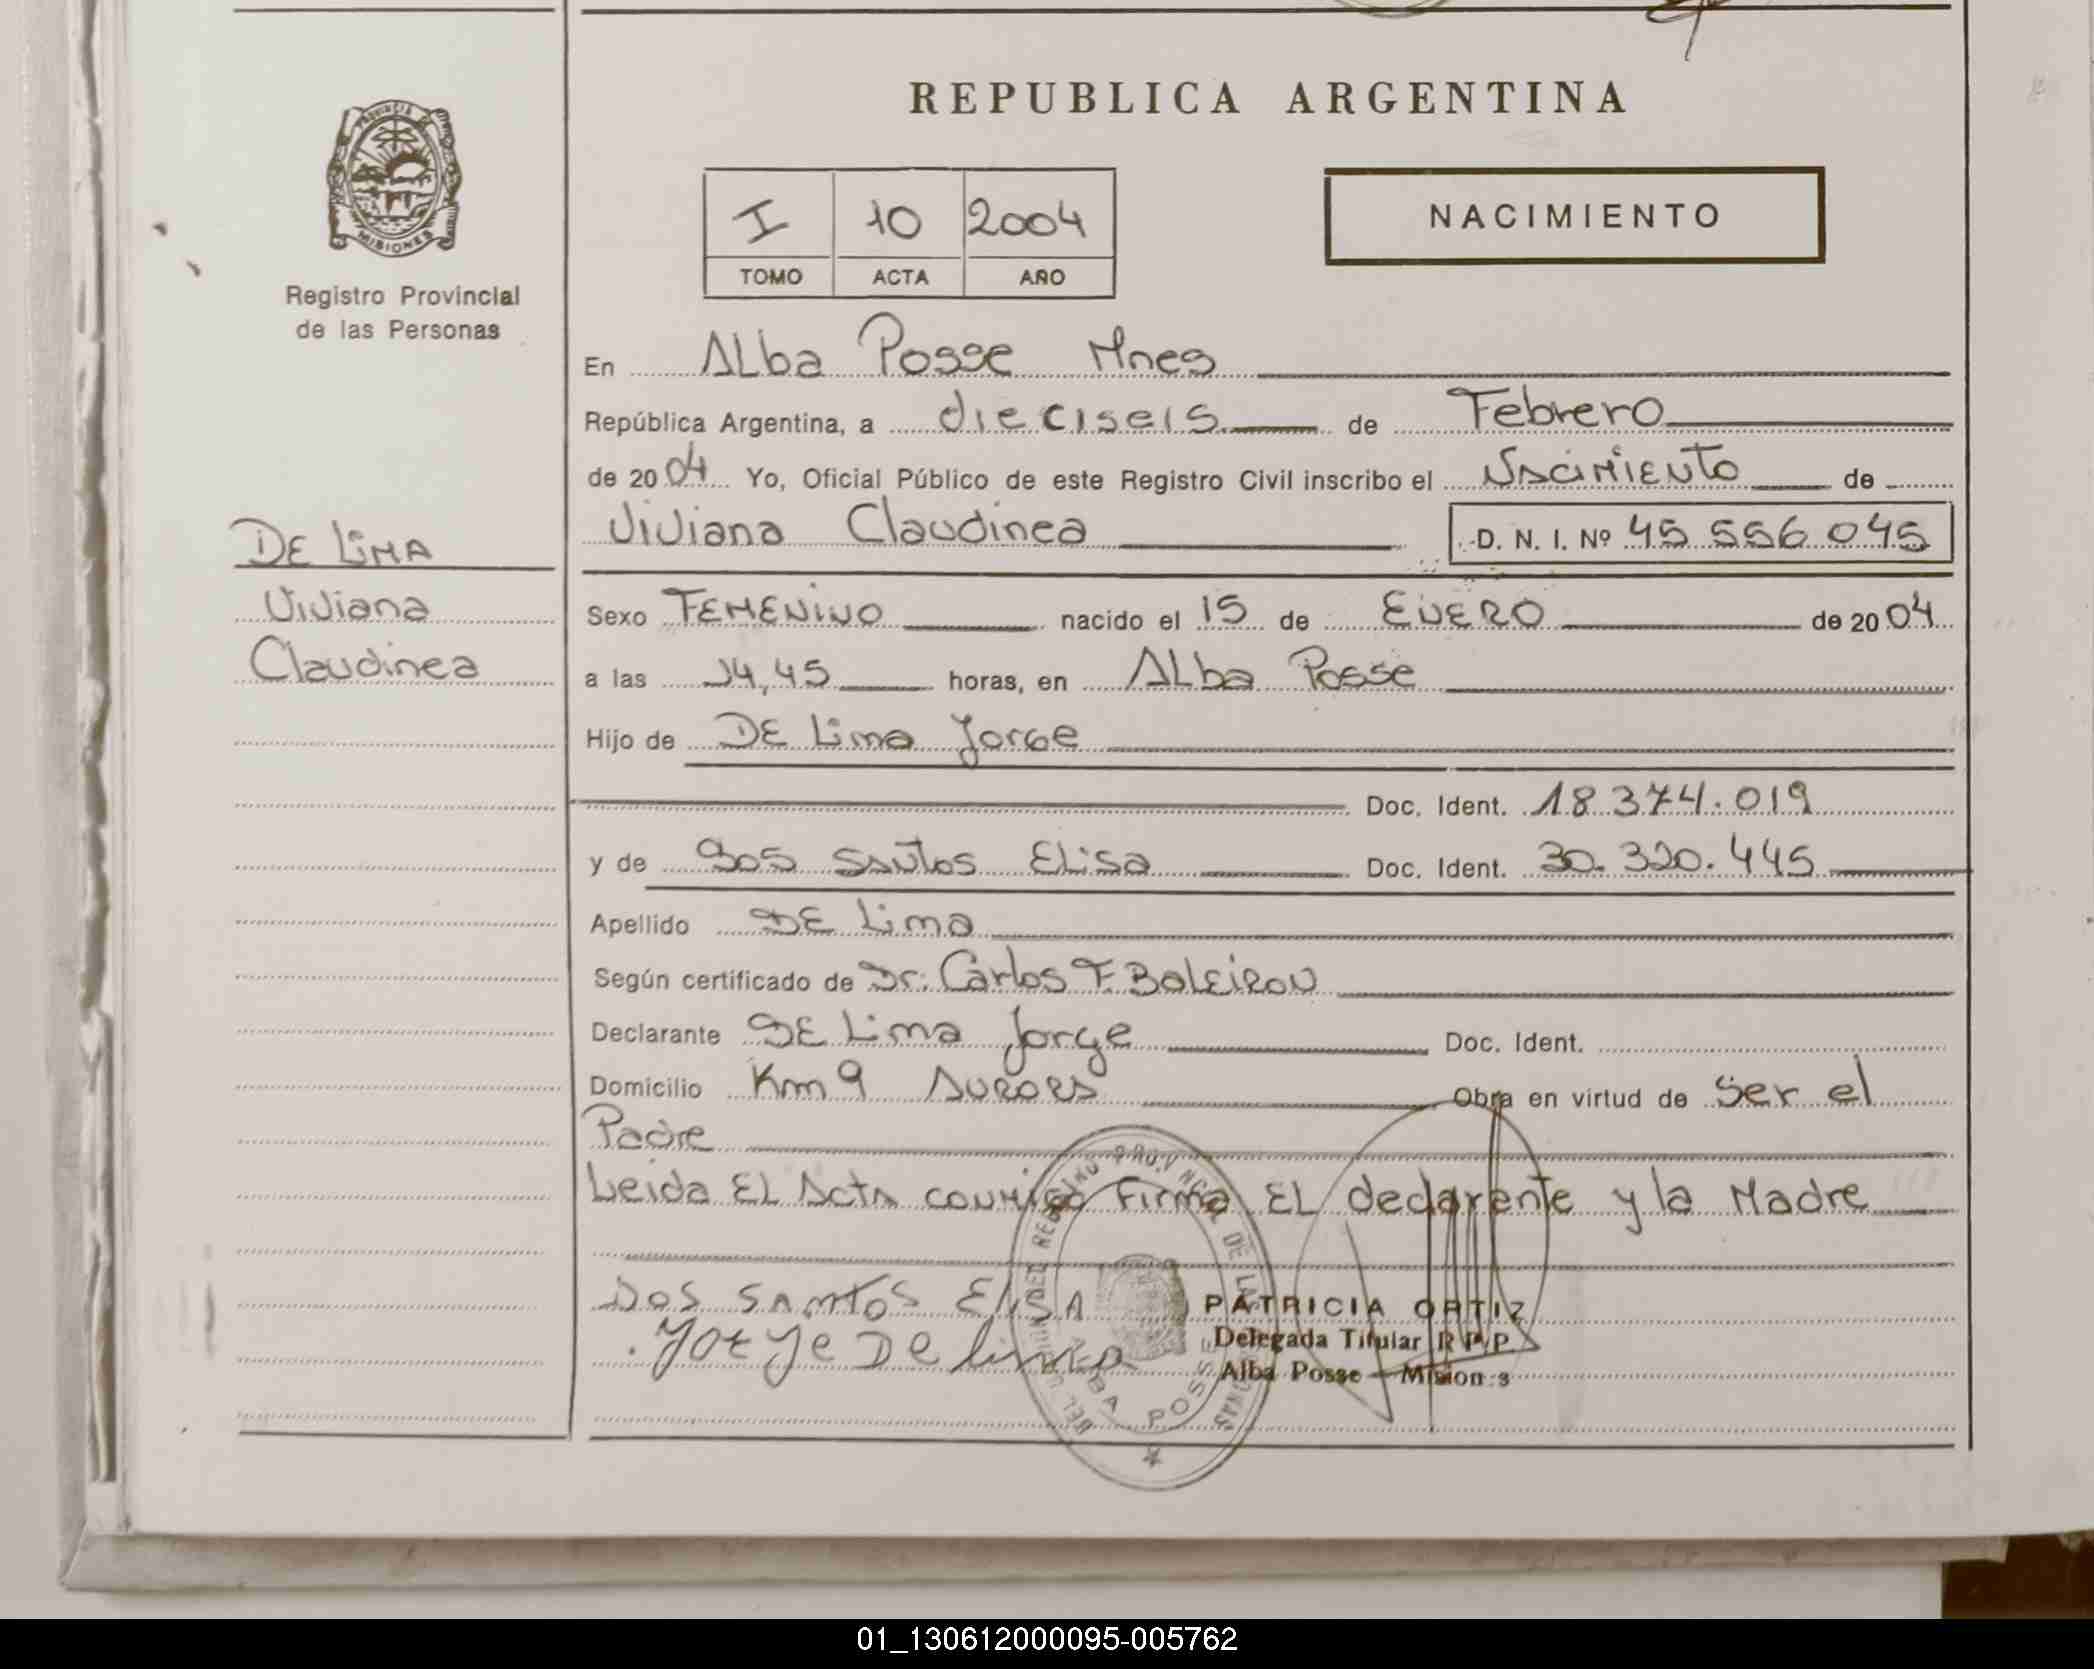 REPUBLICA ARGENTINA
PROVINCIA DE
MISIONES
Registro Provincial
de las Personas
I 10 2004
TOMO ACTA AÑO
NACIMIENTO
En Alba Posse Mnes
República Argentina, a dieciseis de Febrero
de 2004 Yo, Oficial Público de este Registro Civil inscribo el Nacimiento de
Viviana Claudinea D. N. I. Nº 45 556 045
DE LiMA
Viviana
Claudinea
Sexo FEMENINO nacido el 15 de ENERO de 2004
a las 14,45 horas, en Alba Posse
Hijo de DE Lima Jorge
Doc. Ident. 18.374.019
y de Dos Santos Elisa Doc. Ident. 30.320.445
Apellido DE Lima
Según certificado de Dr: Carlos F. Baleiron
Declarante DE Lima Jorge Doc. Ident.
Domicilio Km 9 Aurora Obra en virtud de Ser el
Padre
Leida EL Acta conmigo Firma EL declarente y la Madre
Dos SAntos ElisA
Jorje De lima
PATRICIA ORTIZ
Delegada Titular R.P.P.
Alba Posse - Mision s
ALBA POSSE
01_130612000095-005762